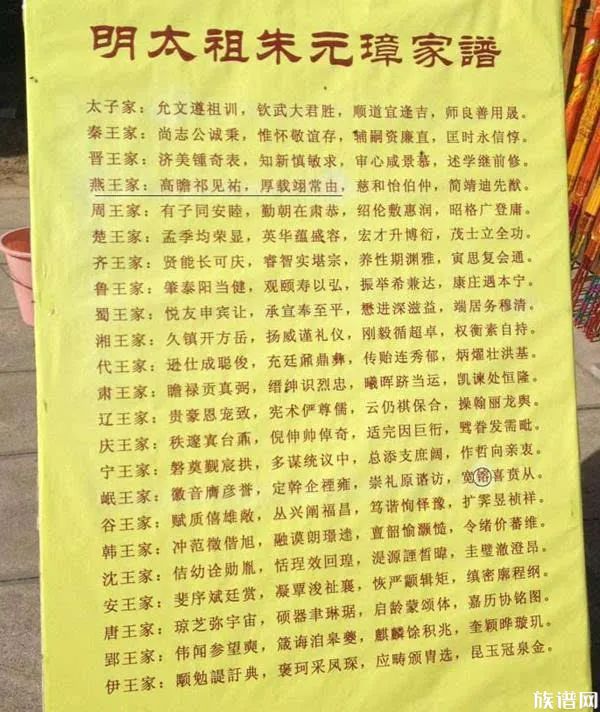 明太祖朱元璋家譜
太子家：允文遵祖训，钦武大君胜，顺道宜逢吉，师良善用晟。
秦王家：尚志公诚秉，惟怀敬谊存，辅嗣资廉直，匡时永信惇。
晋王家：济美锺奇表，知新慎敏求，审心咸景慕，述学继前修。
燕王家：高瞻祁见祐，厚载翊常由，慈和怡伯仲，简靖迪先猷。
周王家：有子同安睦，勤朝在肃恭，绍伦敷惠润，昭格广登庸。
楚王家：孟季均荣显，英华蕴盛容，宏才升博衍，茂士立全功。
齐王家：贤能长可庆，睿智实堪宗，养性期渊雅，寅思复会通。
鲁王家：肇泰阳当健，观颐寿以弘，振举希兼达，康庄遇本宁。
蜀王家：悦友申宾让，承宣奉至平，懋进深滋益，端居务穆清。
湘王家：久镇开方岳，扬威谨礼仪，刚毅循超卓，权衡素自持。
代王家：逊仕成聪俊，充廷鼐鼎彝，传贻连秀郁，炳燿壮洪基。
肃王家：瞻禄贡真弼，缙绅识烈忠，曦晖跻当运，凯谏处恒隆。
辽王家：贵豪恩宠致，宪术俨尊儒，云仍祺保合，操翰丽龙舆。
庆王家：秩邃寘台鼐，倪伸帅倬奇，适完因巨衍，眷发需毗。
宁王家：磐奠觐宸拱，多谋统议中，总添支庶阔，作哲向亲衷。
岷王家：徽音膺彦誉，定幹企禋雍，崇礼原谘访，宽镕喜贲从。
谷王家：赋质僖雄敞，丛兴阐福昌，笃谐恂怿豫，扩霁昱祯祥。
韩王家：冲范徵偕旭，融谟朗璟逵，亶韶愉灏慥，令绪价蕃维。
沈王家：佶幼诠勋胤，恬珵效回瑝，湜源諲晢暐，圭璧澈澄昂。
安王家：斐序斌廷赏，凝覃浚祉襄，恢严颛辑矩，缜密廓程纲。
唐王家：琼芝弥宇宙，硕器聿琳琚，启龄蒙颂体，嘉历协铭图。
郢王家：伟闻参望奭，箴诲洎皋夔，麒麟馀积兆，奎颖晔璇玑。
伊王家：顒勉諟訏典，褒珂采凤琛，应畴颁胄选，昆玉冠泉金。
族谱网